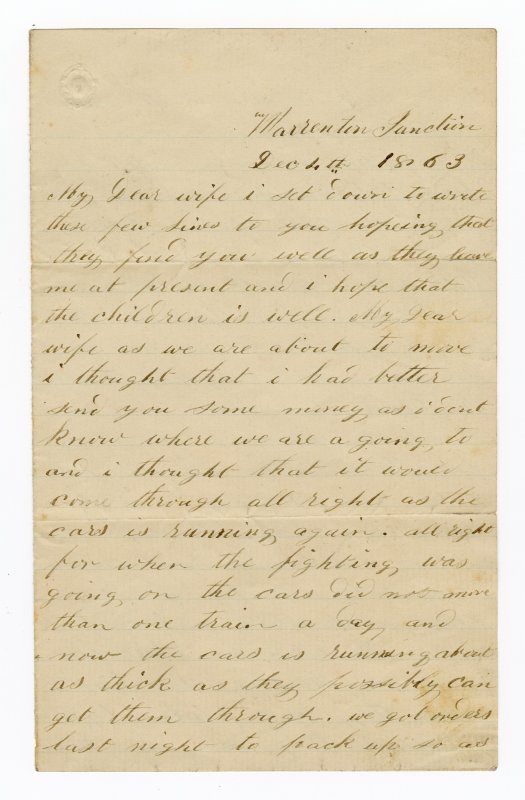 Warrenton Junction
Dec 4th 1863
My Dear wife i set down to write
these few lines to you hopeing that
they find you well as they leave
me at present and i hope that
the children is well. My Dear
wife as we are about to move
i thought that i had better
send you some money as i dont
know where we are a going to
and i thought that it would
come through all right as the
cars is running again. all right
for when the fighting was
going on the cars did not more
than one train a day and
now the cars is running about
as thick as they possibly can
get them through. we got orders
last night to pack up so as